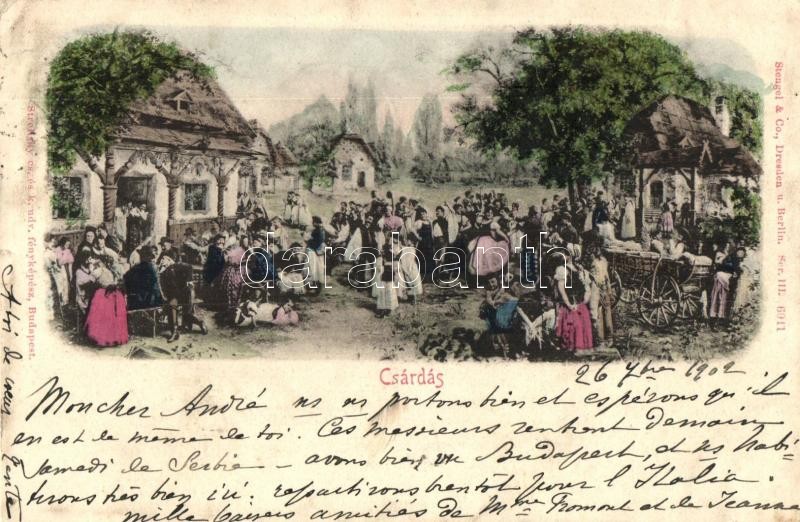 Csárdás
26 7bre 1902
Mon cher André ns ns portons bien et espérons qu'il
en est de même de toi. Ces messieurs rentrent demain
samedi de Serbie – avons bien vu Budapest, et ns habi-
terons très bien ici. repartirons bientôt pour l'Italia.
mille baisers amitiés de Mme Fromont et de Jeanne
A toi de cœur
tante
Strelisky cs. és k. udv. fényképész, Budapest.
Stengel & Co., Dresden u. Berlin. Ser. III. 6941
darabanth